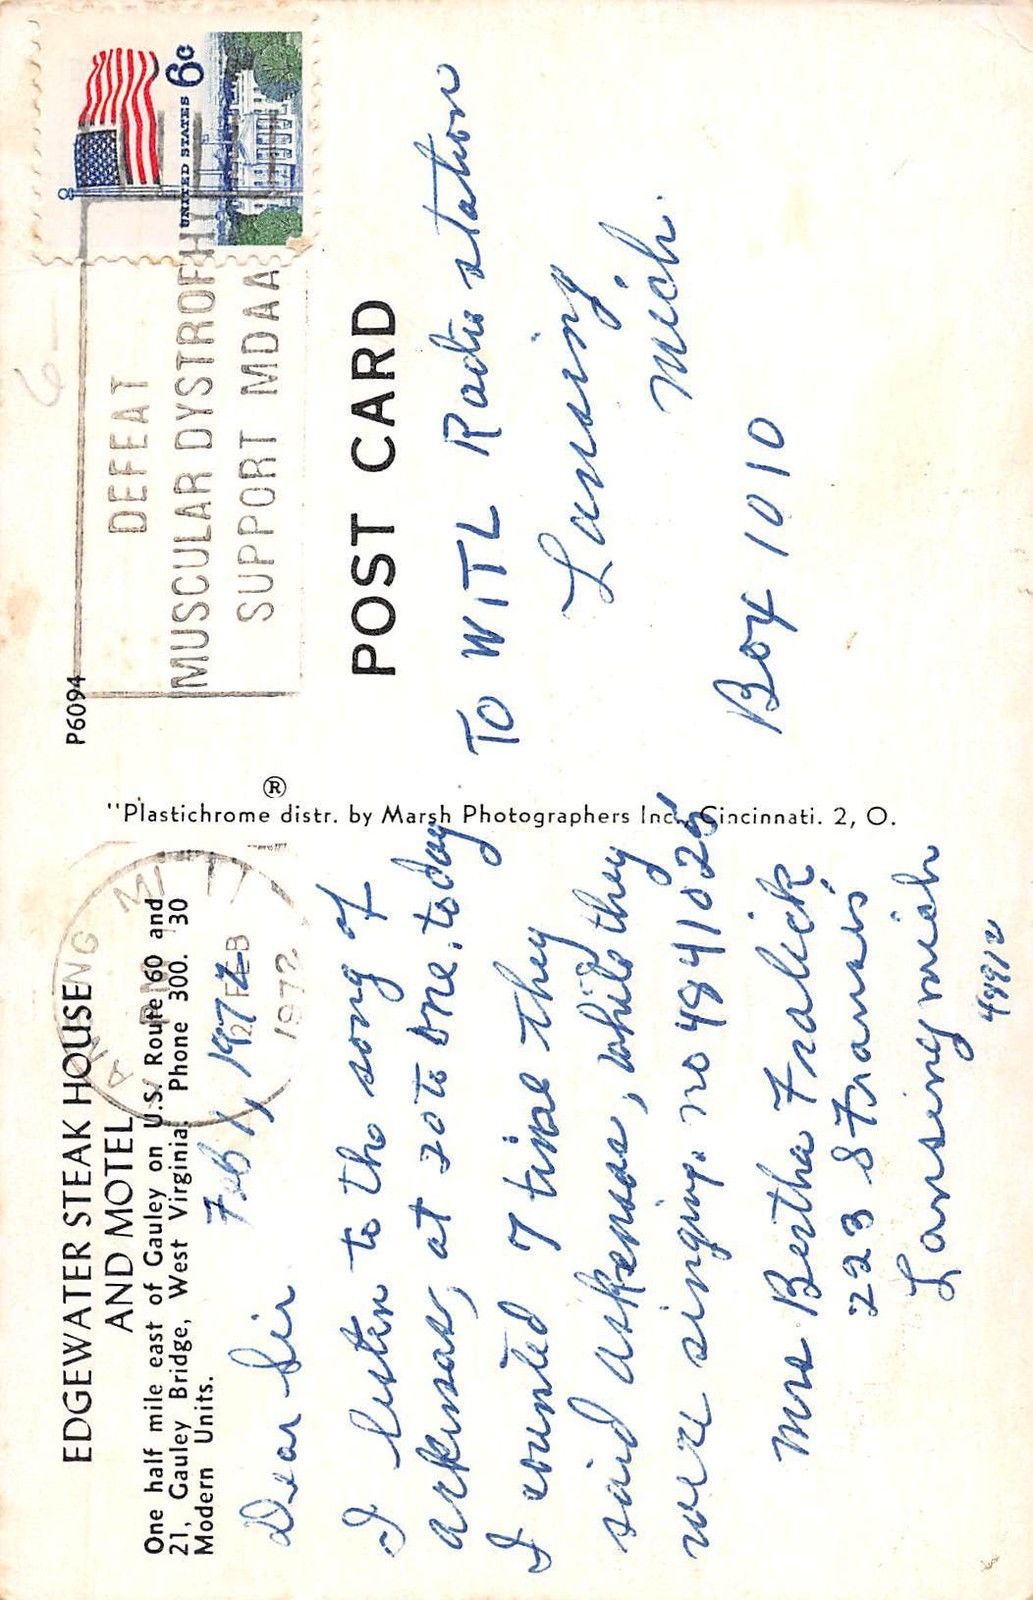 EDGEWATER STEAK HOUSE
AND MOTEL
One half mile east of Gauley on U.S. Route 60 and
21, Gauley Bridge, West Virginia. Phone 300. 30
Modern Units.
Feb 1, 1972
Dear Sir
I listen to the song of
arkensas, at 20 to one. today
I counted 7 time they
said arkensas, while they
were singing. no 4841025
Mrs Bertha Fralick
223 S Francis
Lansing mich
48912
"Plastichrome ® distr. by Marsh Photographers Inc., Cincinnati. 2, O.
P6094
LANSING MI
PM
2 FEB
1972
DEFEAT
MUSCULAR DYSTROPHY
SUPPORT MDAA
UNITED STATES 6c
6-
POST CARD
To WITL Radio station
Lansing,
Mich.
Box 1010